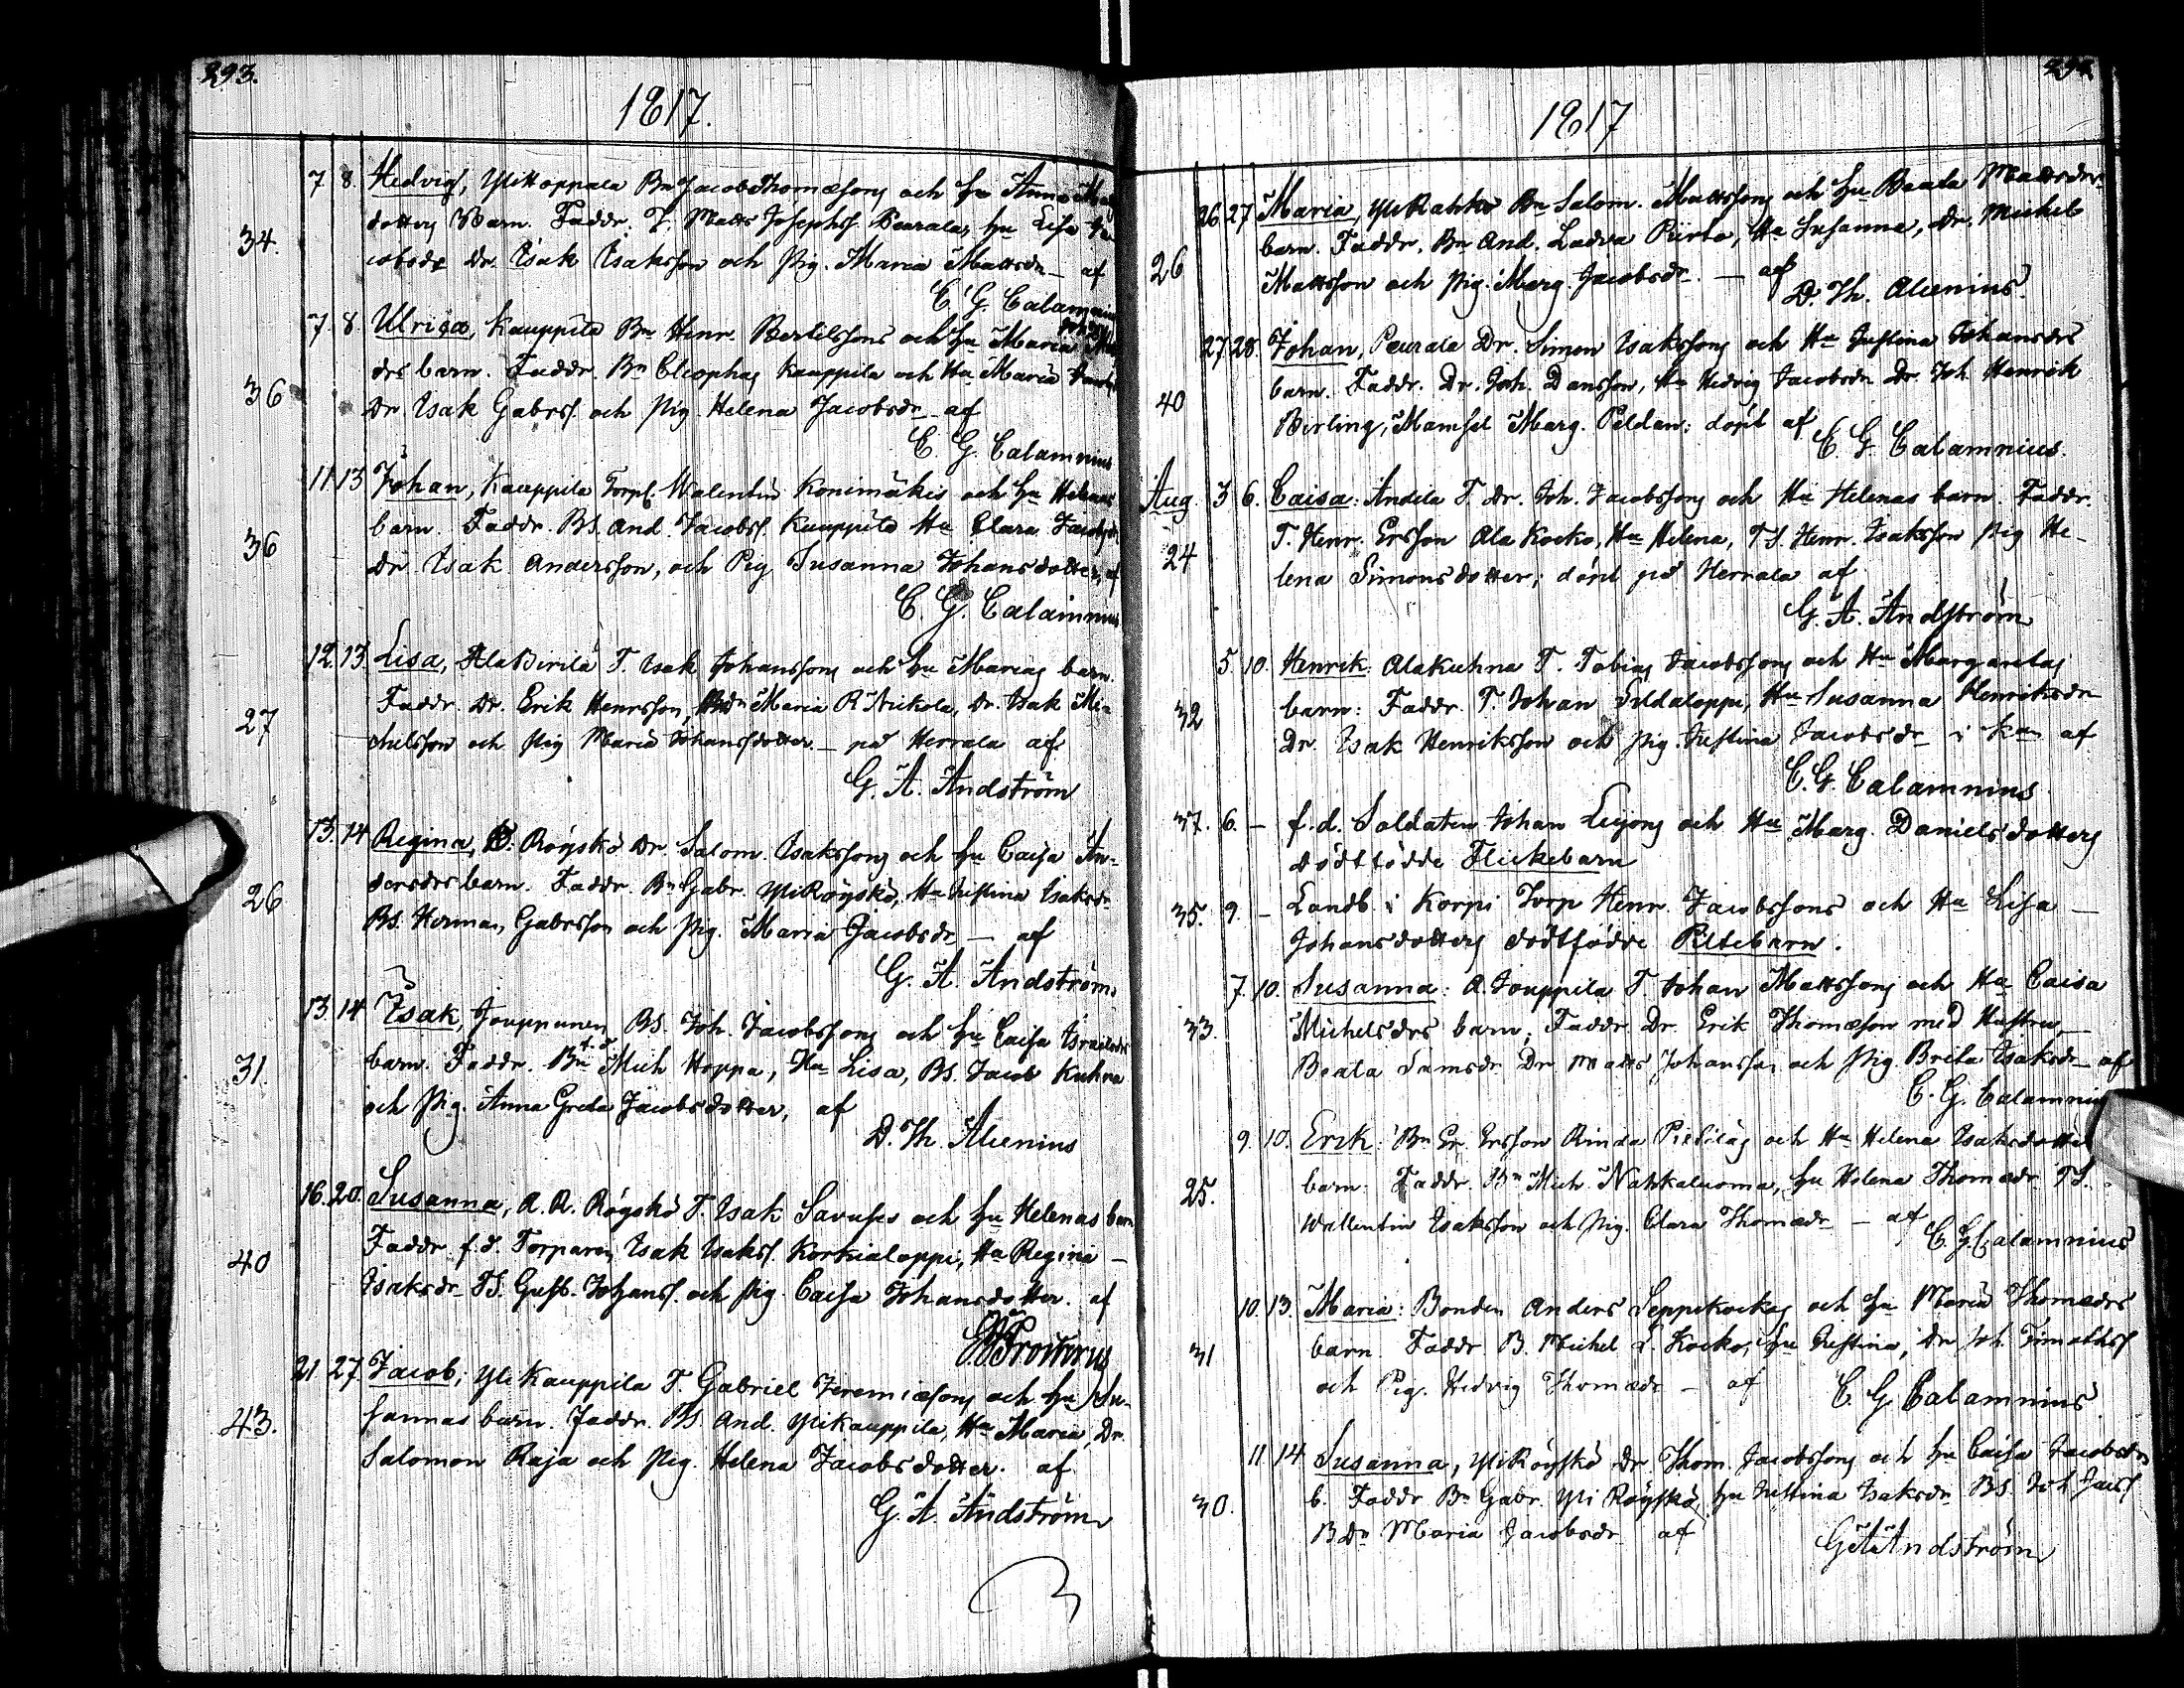 293.
1817.
7 8. Hedvig, Yli Hoppala Bn Jacob Thomæssons och hu Anna
34. dotters Barn. Faddr. T. Matts Josephs. Peurala, hu Lisa Ja
cobsdr Dr. Isak Isaksson och Pig. Maria Mattsdr — af
C. G. Calamnius
7. 8. Ulrica, Kauppila Bn Henr. Bertilssons och hu Maria
36 drs barn. Faddr. Bn Cleophas Kauppila och Hu Maria
Dr Isak Gabrs. och Pig. Helena Jacobsdr af
C. G. Calamnius
11. 13 Johan, Kauppila Torp. Walentin Konimäkis och hu Helenas
36 barn. Faddr. BS. And. Jacobs. Kauppila Hu Clara
Dr. Isak Andersson, och Pig Susanna Johansdotter, af
C. G. Calamnius
12. 13. Lisa, T. Isak Johanssons och hu Marias barn.
27 Faddr. Dr. Erik Henrsson, Maria Dr. Isak Mi-
chelsson och Pig Maria Johansdotter — på Herrala af
G. A. Andström
13. 14 Regina, Röyskö Dr. Salom. Isakssons och hu Caisa An-
26 dersdrs barn. Faddr. Bn Gabr. Yli Röyskö, Hu Justina Isaksdr
BS. Herman Gabrsson och Pig. Maria Jacobsdr — af
G. A. Andström
13. 14 Isak, Jouppunen BS. Joh. Jacobssons och hu Caisa Israelsdrs
31. barn. Faddr. Bn Mich Hoppa, Hu Lisa, BS. Jacob Kuhna
och Pig. Anna Greta Jacobsdotter, af
D. Th. Alcenius
16. 20. Susanna, A. R. Röyskö T. Isak och hu Helenas barn
40 Faddr. f. d. Torparen Isak Isaks. Korkialoppi, Hu Regina —
Isaksdr TS. Gust. Johans. och Pig. Caisa Johansdotter. af
21 27. Jacob, Yli Kauppila T. Gabriel Jeremiæssons och hu Su-
43. sannas barn. Faddr. BS. And. Yli Kauppila, Hu Maria, Dr.
Salomon Raja och Pig. Helena Jacobsdotter. af
G. A. Andström
1817
26 27 Maria, Yli Rahko Bn Salom. Mattssons och hu Beata Mattsdrs
26 barn. Faddr. Bn And. Ladva Pirto, Hu Susanna, Dr. Michel
Mattsson och Pig. Marg. Jacobsdr. — af
D. Th. Alcenius.
27 28. Johan, Peurala Dr. Simon Isakssons och Hu Justina Johansdrs
40 barn. Faddr. Dr. Joh. Dansson, Hu Hedvig Jacobsdr Dr. Joh. Henrik
Berling, Mamsel Marg. Peldan: döpt af
C. G. Calamnius.
Aug. 3 6. Caisa: Andila T. Dr. Joh. Jacobssons och Hu Helenas barn Faddr.
24 T. Henr. Ersson Ala Kocko, Hu Helena, TS. Henr. Isaksson Pig He-
lena Simonsdotter; döpt på Herrala af
G. A. Andström
5. 10. Henrik Alakuhna T. Tobias Jacobssons och Hu Margaretas
32 barn: Faddr. T. Johan Sildaloppi, Hu Susanna Henriksdr
Dr. Isak Henriksson och Pig. Justina Jacobsdr i Kan af
C. G. Calamnius
37. 6. — f. d. Soldaten Johan Leijons och Hu Marg. Danielsdotters
dödfödde Flickebarn
35. 9. — Landb. i Korpi Torp Henr. Jacobssons och Hu Lisa —
Johansdotters dödfödde Piltebarn.
7. 10. Susanna: A. Jouppila T. Johan Mattssons och Hu Caisa
33. Michelsdrs barn; Faddr. Dr. Erik Thomæson med Hustru —
Beata Samsdr Dr Matts Johansson och Pig. Brita Isaksdr — af
C. G. Calamnius
9. 10. Erik: Bn Er. Ersson Rinda och Hu Helena Isaksdotters
25. barn. Faddr. Bn Mich. Nahkaluoma, hu Helena Thomædr TS.
Wallentin Isaksson och Pig. Clara Thomædr — af
C. G. Calamnius
10. 13. Maria: Bonden Anders Seppikockas och hu Maria Thomædrs
31 barn. Faddr. B. Michel L. Kocko, hu Justina, Dr Joh. Timoths
och Pig. Hedvig Thomædr — af
C. G. Calamnius
11. 14 Susanna, Yli Röyskö Dr Thom. Jacobssons och hu Caisa Jacobsdrs
30. b. Faddr Bn Gabr. Yli Röyskö, hu Justina Isaksdr BS. Joh Jacs
BDr Maria Jacobsdr af
G A Andström